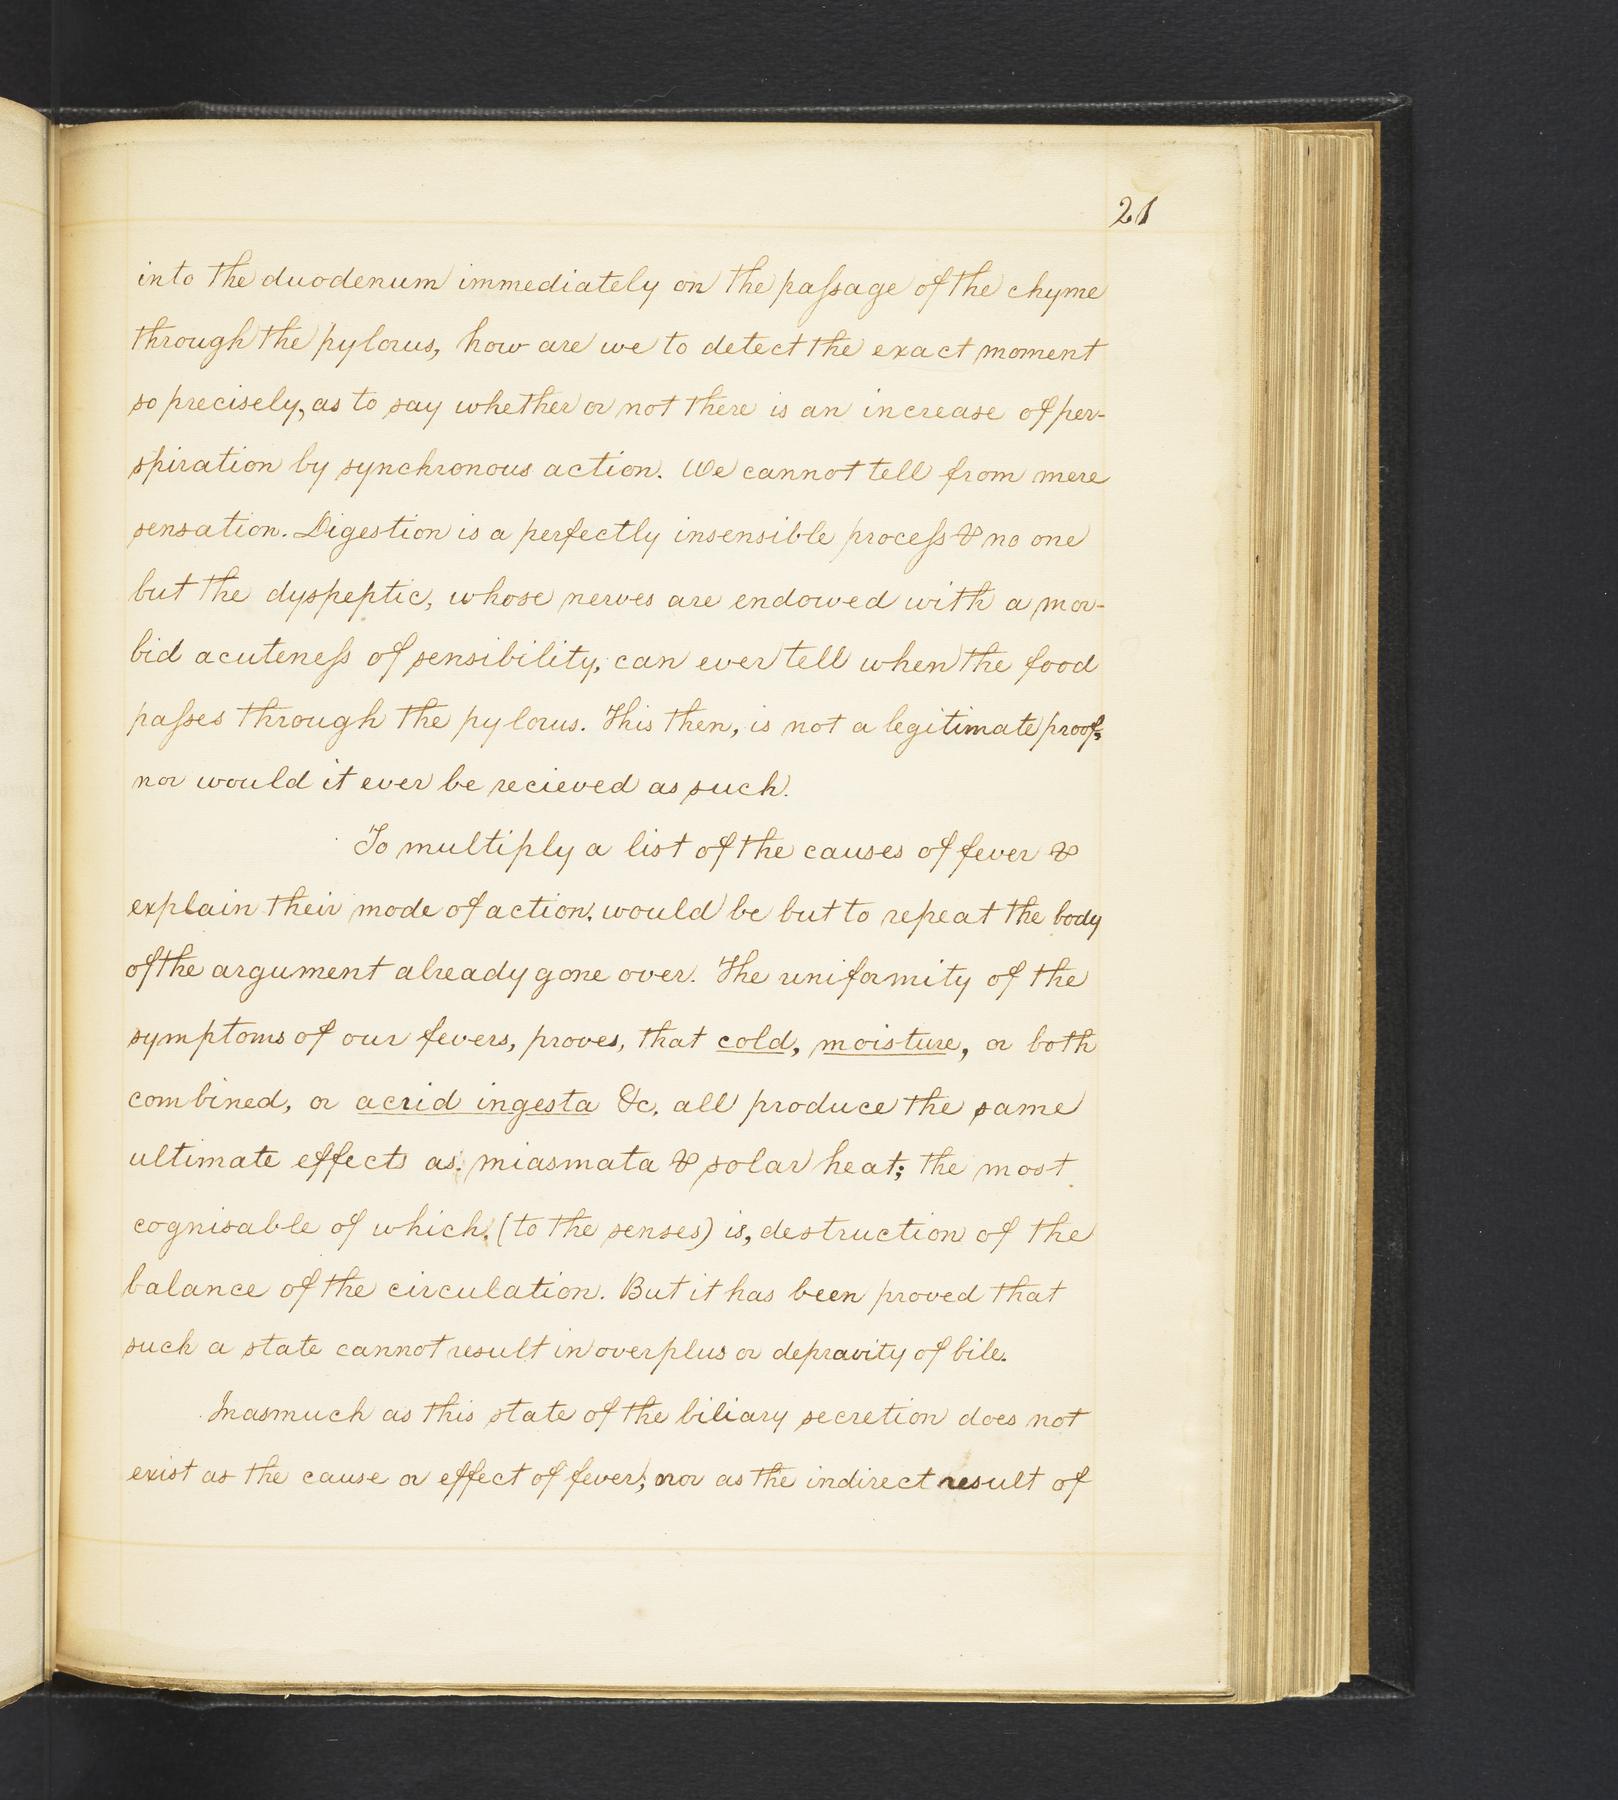 21
into the duodenum immediately on the paſsage of the chyme
through the pylorus, how are we to detect the exact moment
so precisely, as to say whether or not there is an increase of per-
spiration by synchronous action. We cannot tell from mere
sensation. Digestion is a perfectly insensible proceſs & no one
but the dyspeptic, whose nerves are endowed with a mor-
bid acuteneſs of sensibility, can ever tell when the food
paſses through the pylorus. This then, is not a legitimate proof,
nor would it ever be recieved as such.
To multiply a list of the causes of fever &
explain their mode of action, would be but to repeat the body
of the argument already gone over. The uniformity of the
symptoms of our fevers, proves, that cold, moisture, or both
combined, or acrid ingesta &c. all produce the same
ultimate effects as miasmata & solar heat; the most
cognisable of which, (to the senses) is, destruction of the
balance of the circulation. But it has been proved that
such a state cannot result in overplus or depravity of bile.
Inasmuch as this state of the biliary secretion does not
exist as the cause or effect of fever; nor as the indirect result of